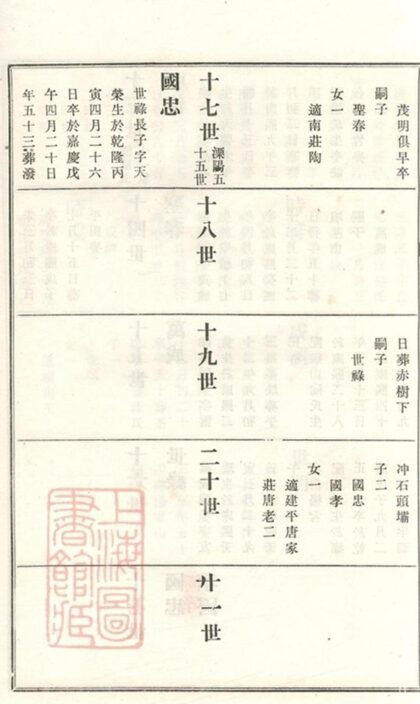 茂明俱早卒
嗣子
聖春
女一
適南莊陶
日葬赤樹下
嗣子
世祿
冲石頭壩
子二
國忠
國孝
女一
適建平唐家
莊唐老二
十七世
溧陽五
十五世
十八世
十九世
二十世
廿一世
國忠
世祿長子字天
榮生於乾隆丙
寅四月二十六
日卒於嘉慶戊
午四月二十日
年五十三葬潑
上海圖
書館藏